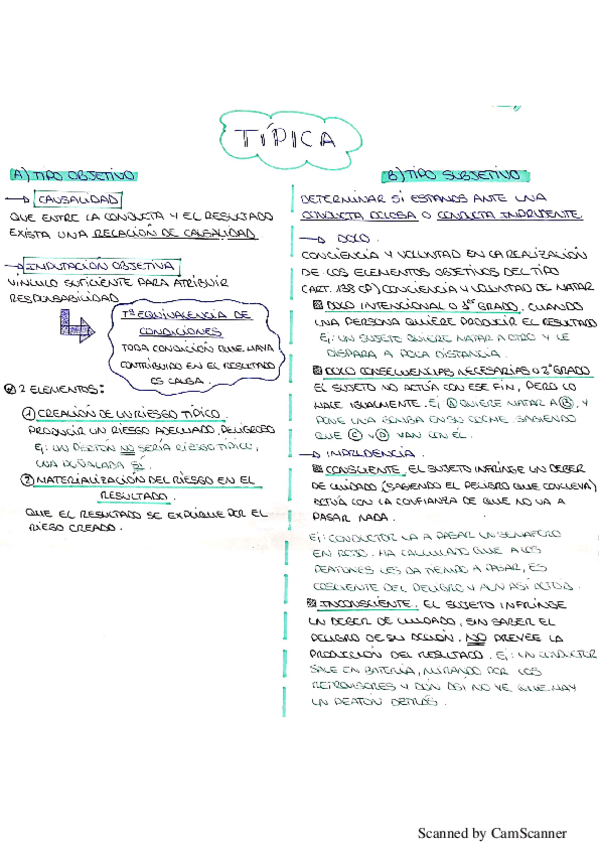 TÍPICA
A) TIPO OBJETIVO
→ CAUSALIDAD
QUE ENTRE LA CONDUCTA Y EL RESULTADO
EXISTA UNA RELACIÓN DE CAUSALIDAD.
→ IMPUTACIÓN OBJETIVA
VINCULO SUFICIENTE PARA ATRIBUIR
RESPONSABILIDAD
Tª EQUIVALENCIA DE
CONDICIONES
TODA CONDICIÓN QUE HAYA
CONTRIBUIDO EN EL RESULTADO
ES CAUSA.
2 ELEMENTOS:
① CREACIÓN DE UN RIESGO TÍPICO.
PRODUCIR UN RIESGO ADECUADO, PELIGROSO
Ej: UN PELLIZCO NO SERÍA RIESGO TÍPICO,
UNA PUÑALADA SÍ.
② MATERIALIZACIÓN DEL RIESGO EN EL
RESULTADO.
QUE EL RESULTADO SE EXPLIQUE POR EL
RIESGO CREADO.
B) TIPO SUBJETIVO
DETERMINAR SI ESTAMOS ANTE UNA
CONDUCTA DOLOSA O CONDUCTA IMPRUDENTE.
→ DOLO.
CONCIENCIA Y VOLUNTAD EN LA REALIZACIÓN
DE LOS ELEMENTOS OBJETIVOS DEL TIPO
(ART. 138 CP) CONCIENCIA Y VOLUNTAD DE MATAR
DOLO INTENCIONAL O 1er GRADO. CUANDO
UNA PERSONA QUIERE PRODUCIR EL RESULTADO
Ej: UN SUJETO QUIERE MATAR A OTRO Y LE
DISPARA A POCA DISTANCIA.
DOLO CONSECUENCIAS NECESARIAS O 2º GRADO
EL SUJETO NO ACTÚA CON ESE FIN, PERO LO
HACE IGUALMENTE. Ej: Ⓐ QUIERE MATAR A Ⓑ, Y
PONE UNA BOMBA EN SU COCHE SABIENDO
QUE Ⓒ Y Ⓓ VAN CON ÉL.
→ IMPRUDENCIA.
CONSCIENTE. EL SUJETO INFRINGE UN DEBER
DE CUIDADO (SABIENDO EL PELIGRO QUE CONLLEVA)
ACTÚA CON LA CONFIANZA DE QUE NO VA A
PASAR NADA.
Ej: CONDUCTOR VA A PASAR UN SEMÁFORO
EN ROJO. HA CALCULADO QUE A LOS
PEATONES LES DA TIEMPO A PASAR, ES
CONSCIENTE DEL PELIGRO Y AUN ASÍ ACTÚA.
INCONSCIENTE. EL SUJETO INFRINGE
UN DEBER DE CUIDADO, SIN SABER EL
PELIGRO DE SU ACCIÓN. NO PREVEE LA
PRODUCCIÓN DEL RESULTADO. Ej: UN CONDUCTOR
SALE EN BATERÍA, MIRANDO POR LOS
RETROVISORES Y AÚN ASÍ NO VE QUE HAY
UN PEATÓN DETRÁS.
Scanned by CamScanner